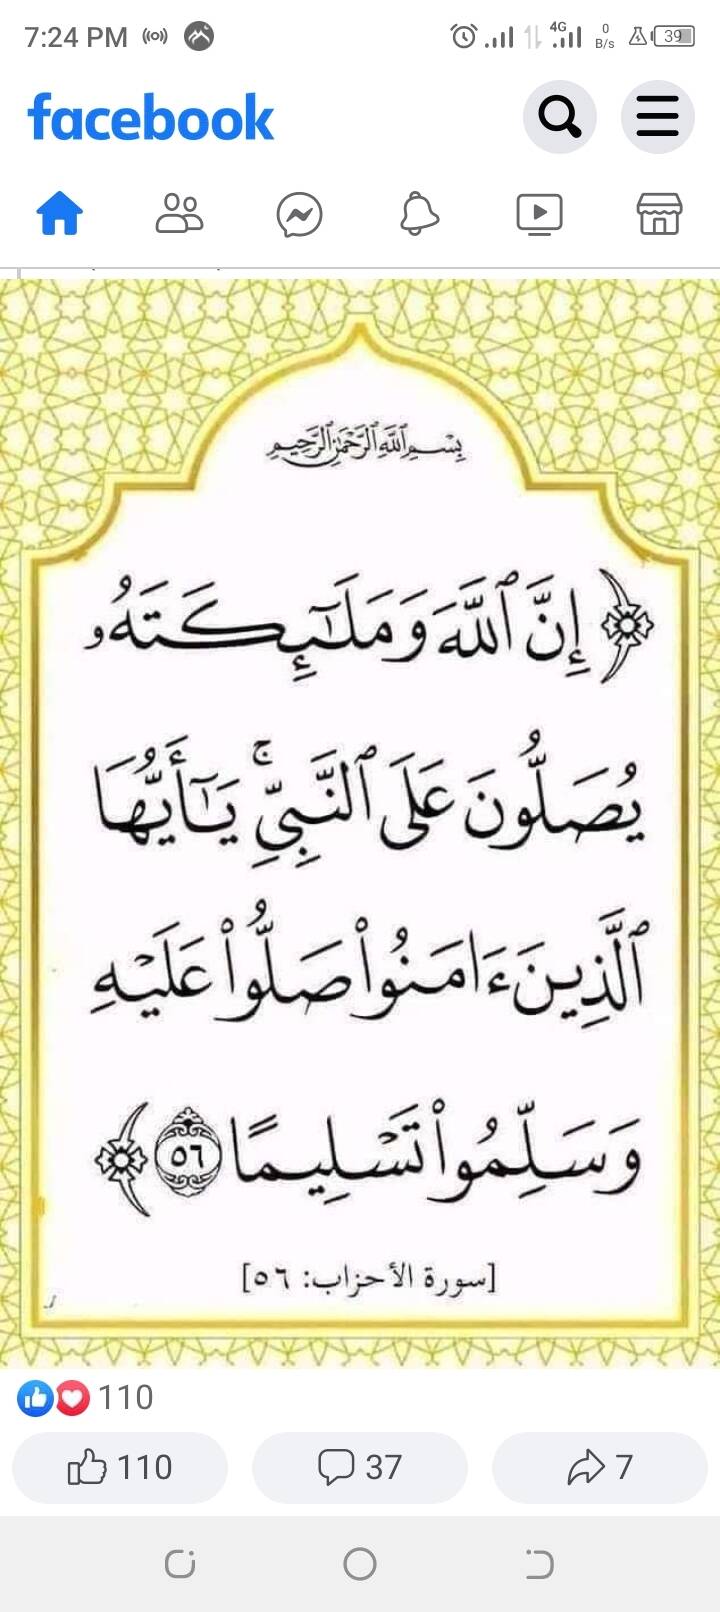 7:24 PM
4G
0 B/s
39
facebook
بِسْمِ ٱللَّهِ ٱلرَّحْمَٰنِ ٱلرَّحِيمِ
﴿ إِنَّ ٱللَّهَ وَمَلَٰٓئِكَتَهُۥ
يُصَلُّونَ عَلَى ٱلنَّبِيِّۚ يَٰٓأَيُّهَا
ٱلَّذِينَ ءَامَنُوا۟ صَلُّوا۟ عَلَيْهِ
وَسَلِّمُوا۟ تَسْلِيمًا ٥٦ ﴾
[سورة الأحزاب: ٥٦]
110
110
37
7